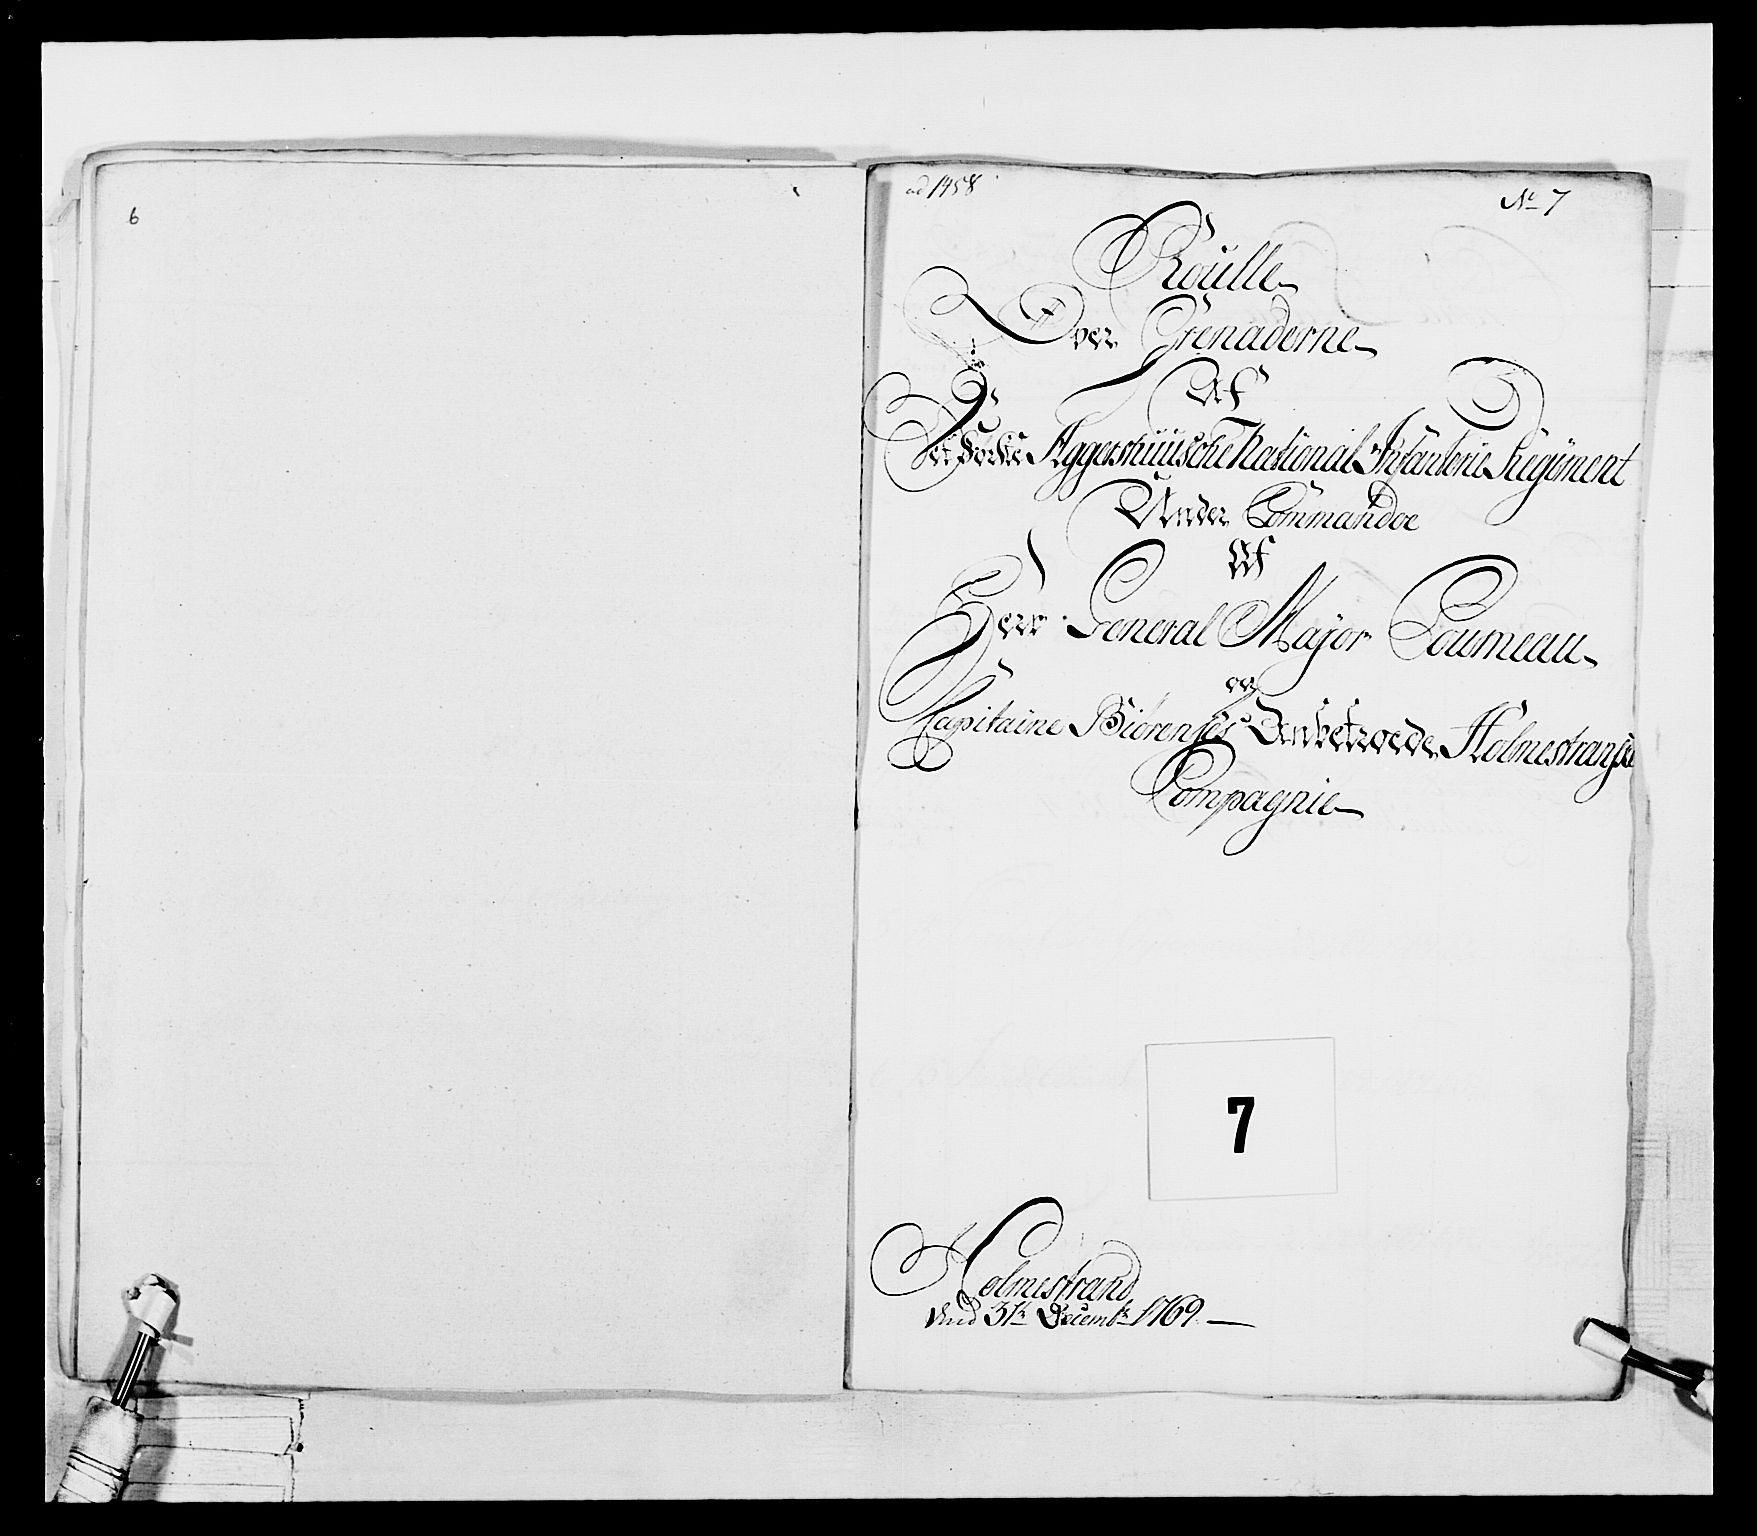 6
ad 1458
No 7
Roülle
Over Grenaderne
Af
Det Første Aggershuusische National Infanterie Regiment
Under Commandoe
Af
Herr General Major Coumeau
og
Capitaine Biørenses Anbetroede Holmestranske
Compagnie
7
Holmestrand
dend 31te Decembr 1769.